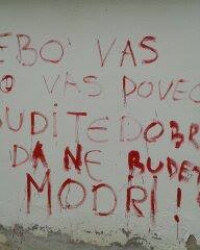 EBO VAS
O VAS POVEO
BUDITE DOBR
DA NE BUDET
MODRI!